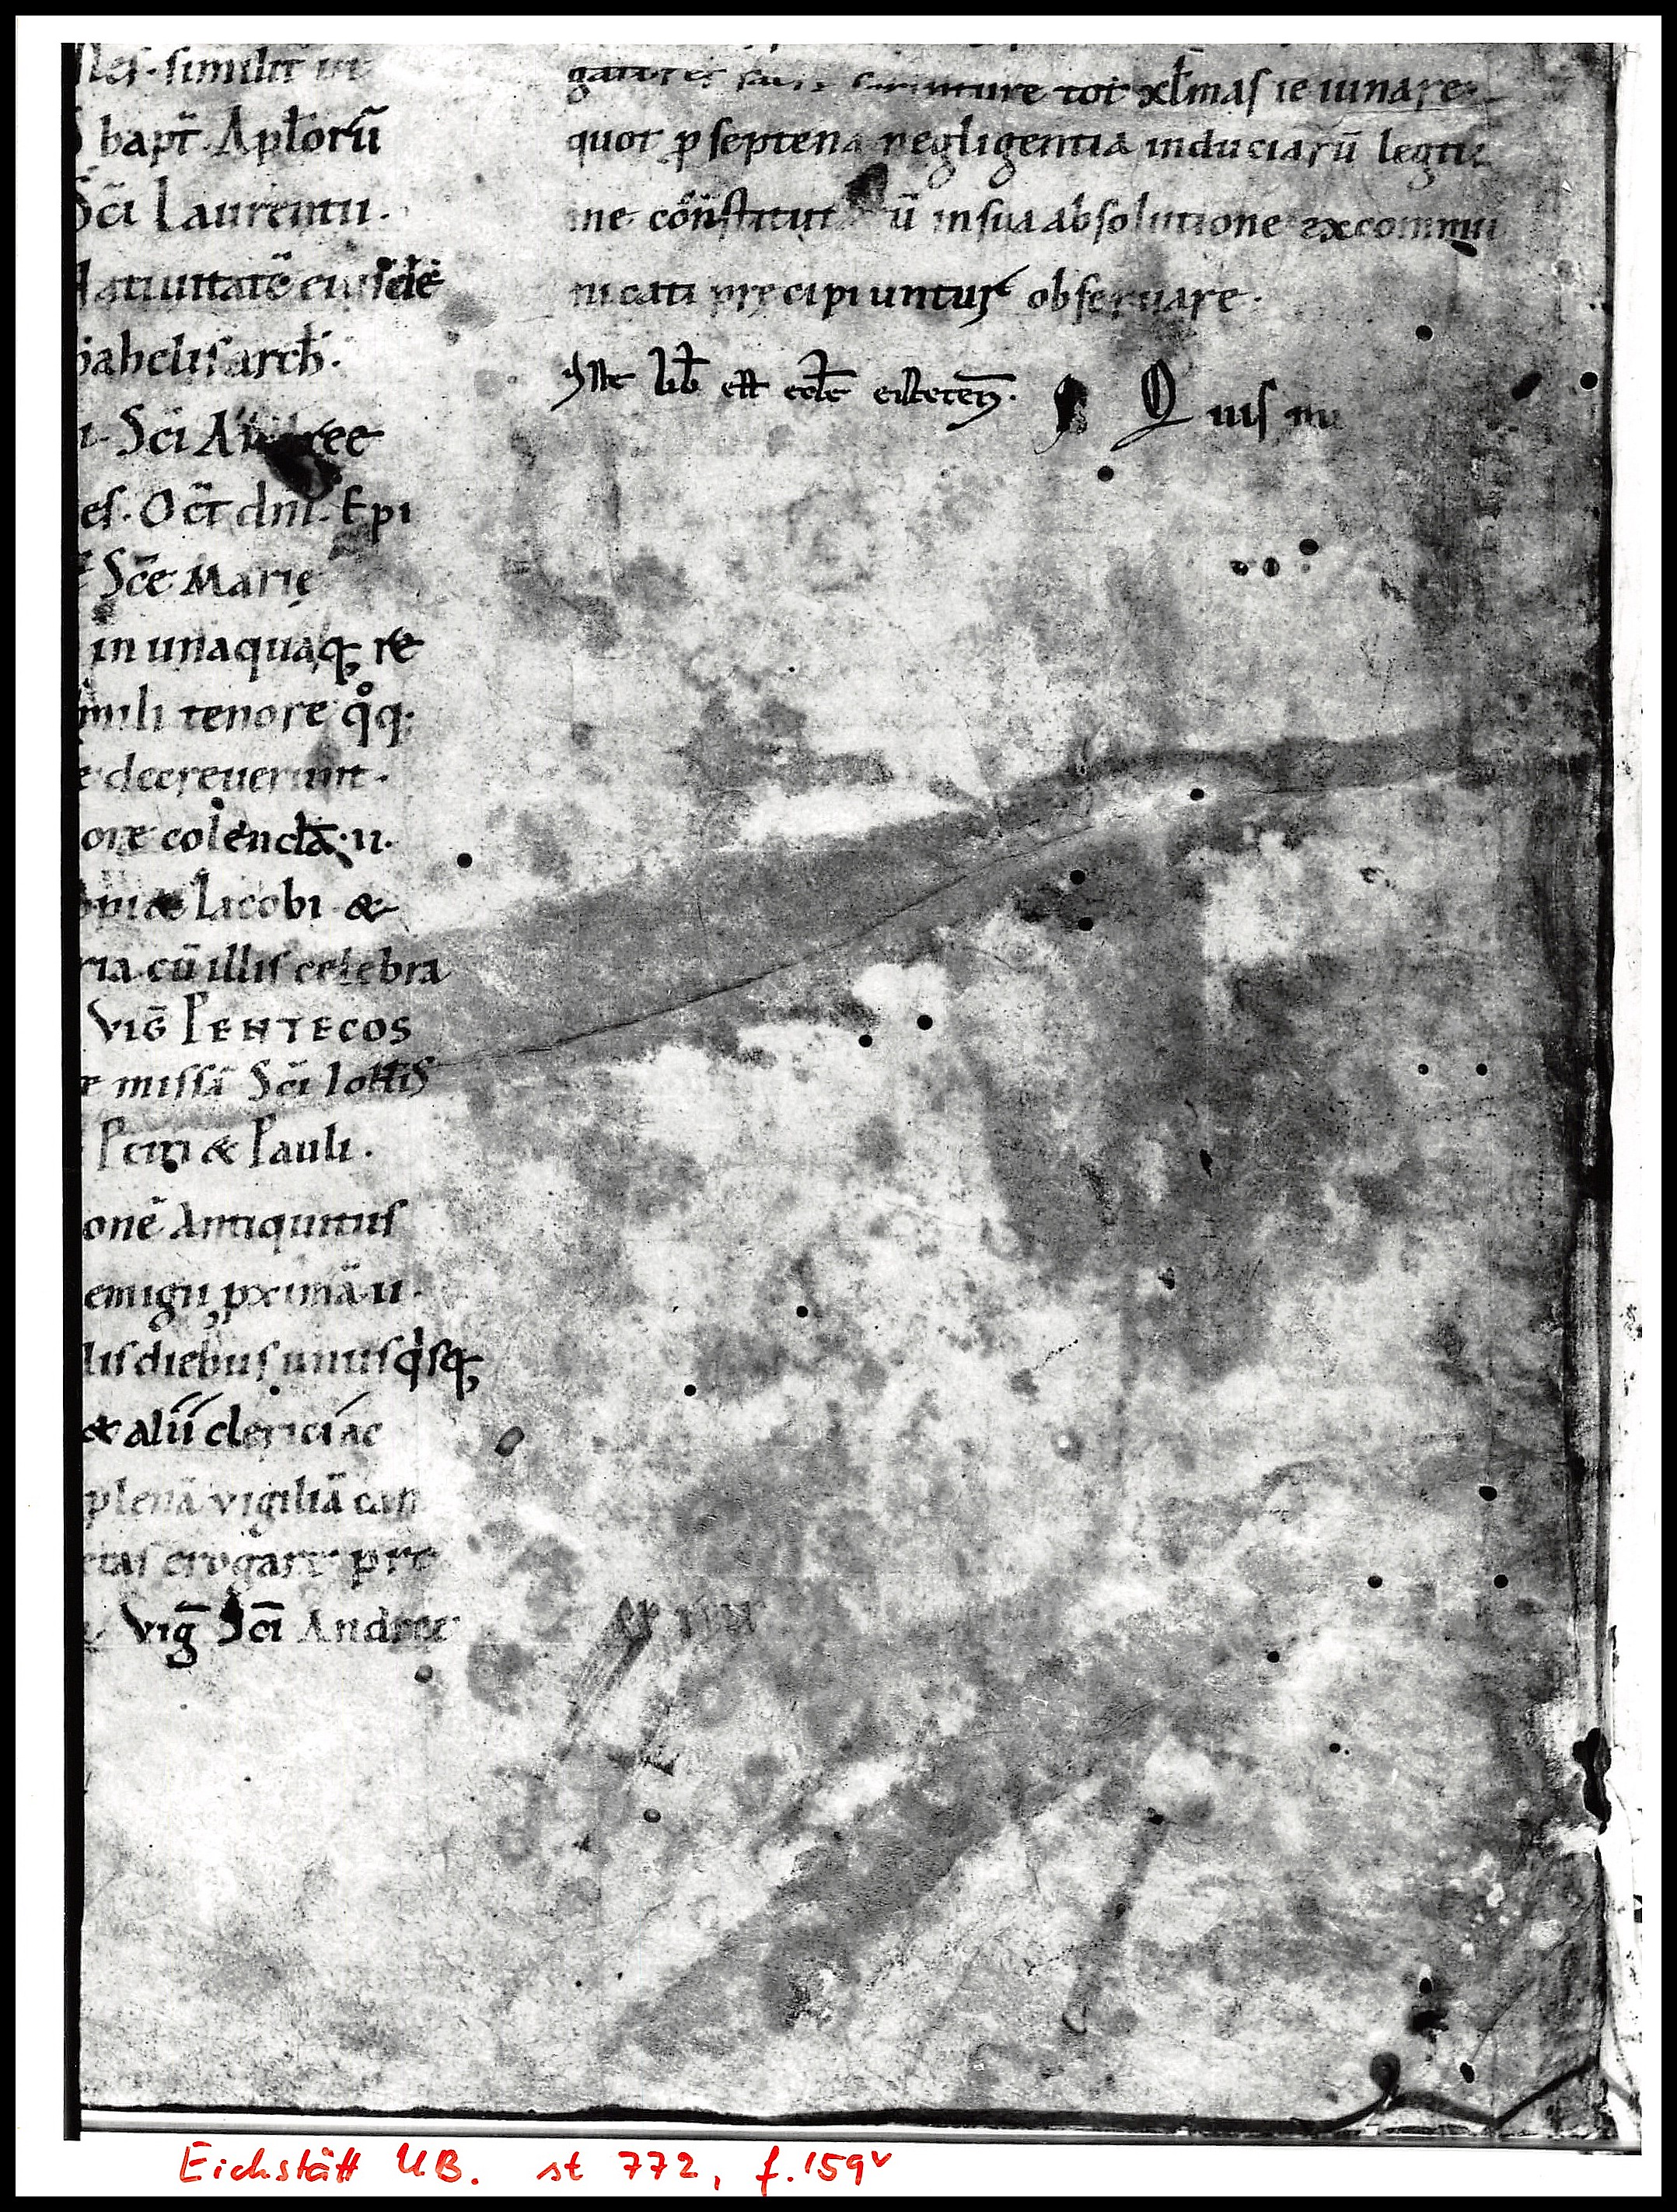 similit
bapt̄. Apl̄orū
Sc̄i Laurentii.
atiuitatē eiusdē
arch̄.
Sc̄i Andree
Oct̄ dn̄i. Epi
Sc̄e Marię
in unaquaq; re
mili tenore q̊q;
decreuerunt.
ore colenda. ii.
Iacobi. &
ria cū illis celebra
Viḡ PENTECOS
missā Sc̄i Ioh̄is
Petri & Pauli.
onē Antiquitus
emigii, pximā ii.
lis diebus unusq'sq;
& alii clerici ac
plenā vigiliā can
etas erogare pre
Viḡ Sc̄i Andree
tot xl̄mas ieiunare
quot p septena negligentia induciarū legiti
me constitut ū in sua absolutione excommu
nicati pręcipiuntur obseruare.
Iste lib̄ est eccl̄e eisteten̄.
Quis
Eichstätt UB. st 772, f. 159v